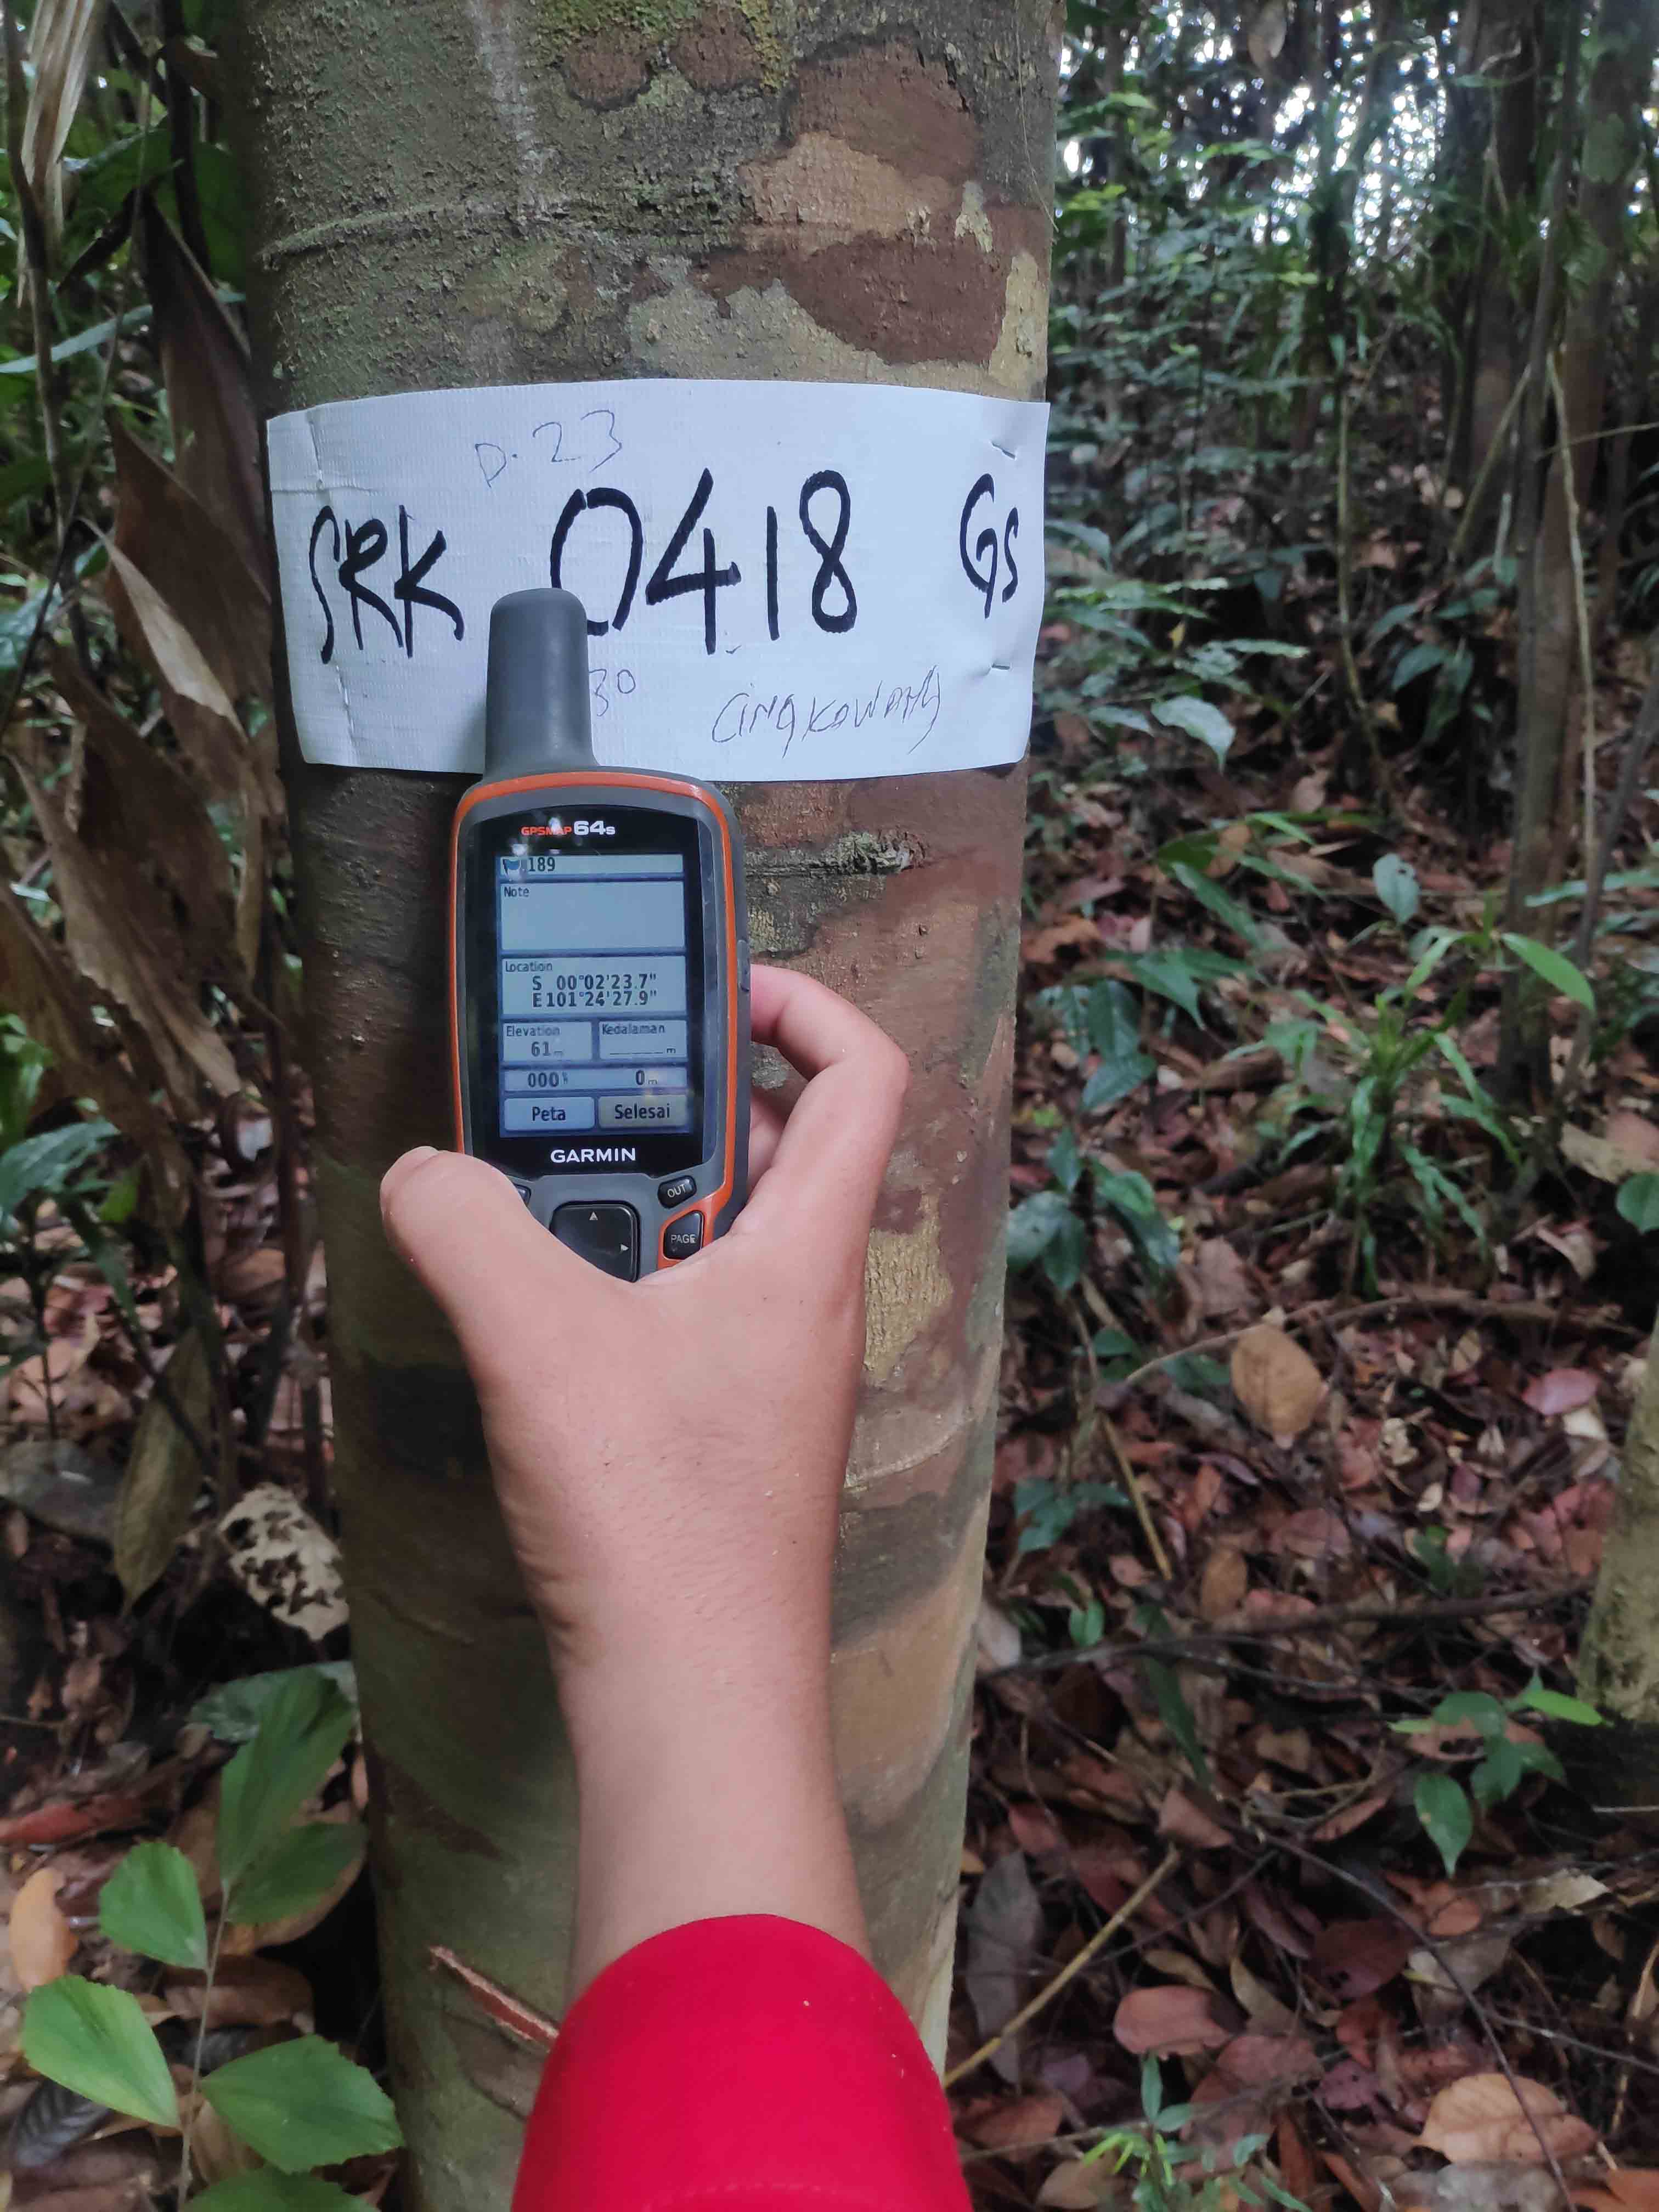 D. 23
SRK 0418 GS
30 CingKoWang
GPSMAP 64s
189
Note
Location
S 00°02'23.7"
E101°24'27.9"
Elevation Kedalaman
61m ______m
000 0m
Peta Selesai
GARMIN
OUT
PAGE